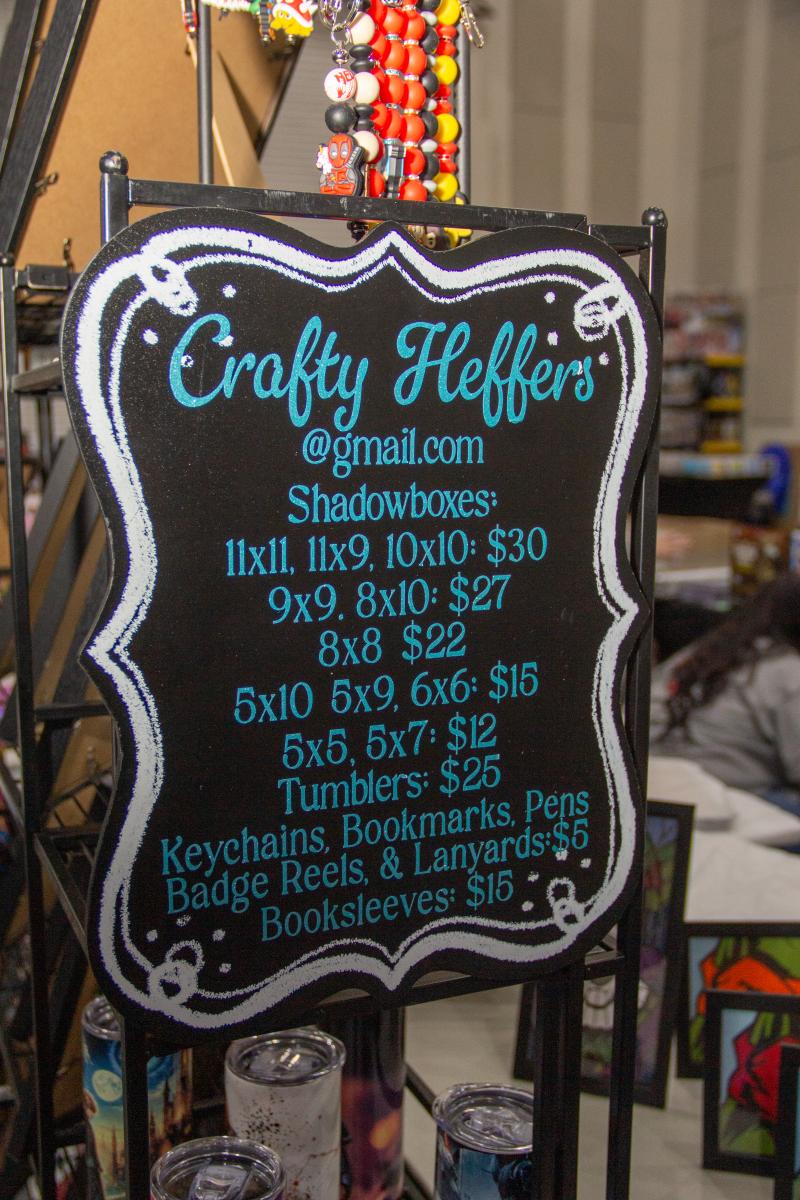 Crafty Heffers
@gmail.com
Shadowboxes:
11x11, 11x9, 10x10: $30
9x9. 8x10: $27
8x8 $22
5x10 5x9, 6x6: $15
5x5, 5x7: $12
Tumblers: $25
Keychains, Bookmarks, Pens
Badge Reels, & Lanyards:$5
Booksleeves: $15